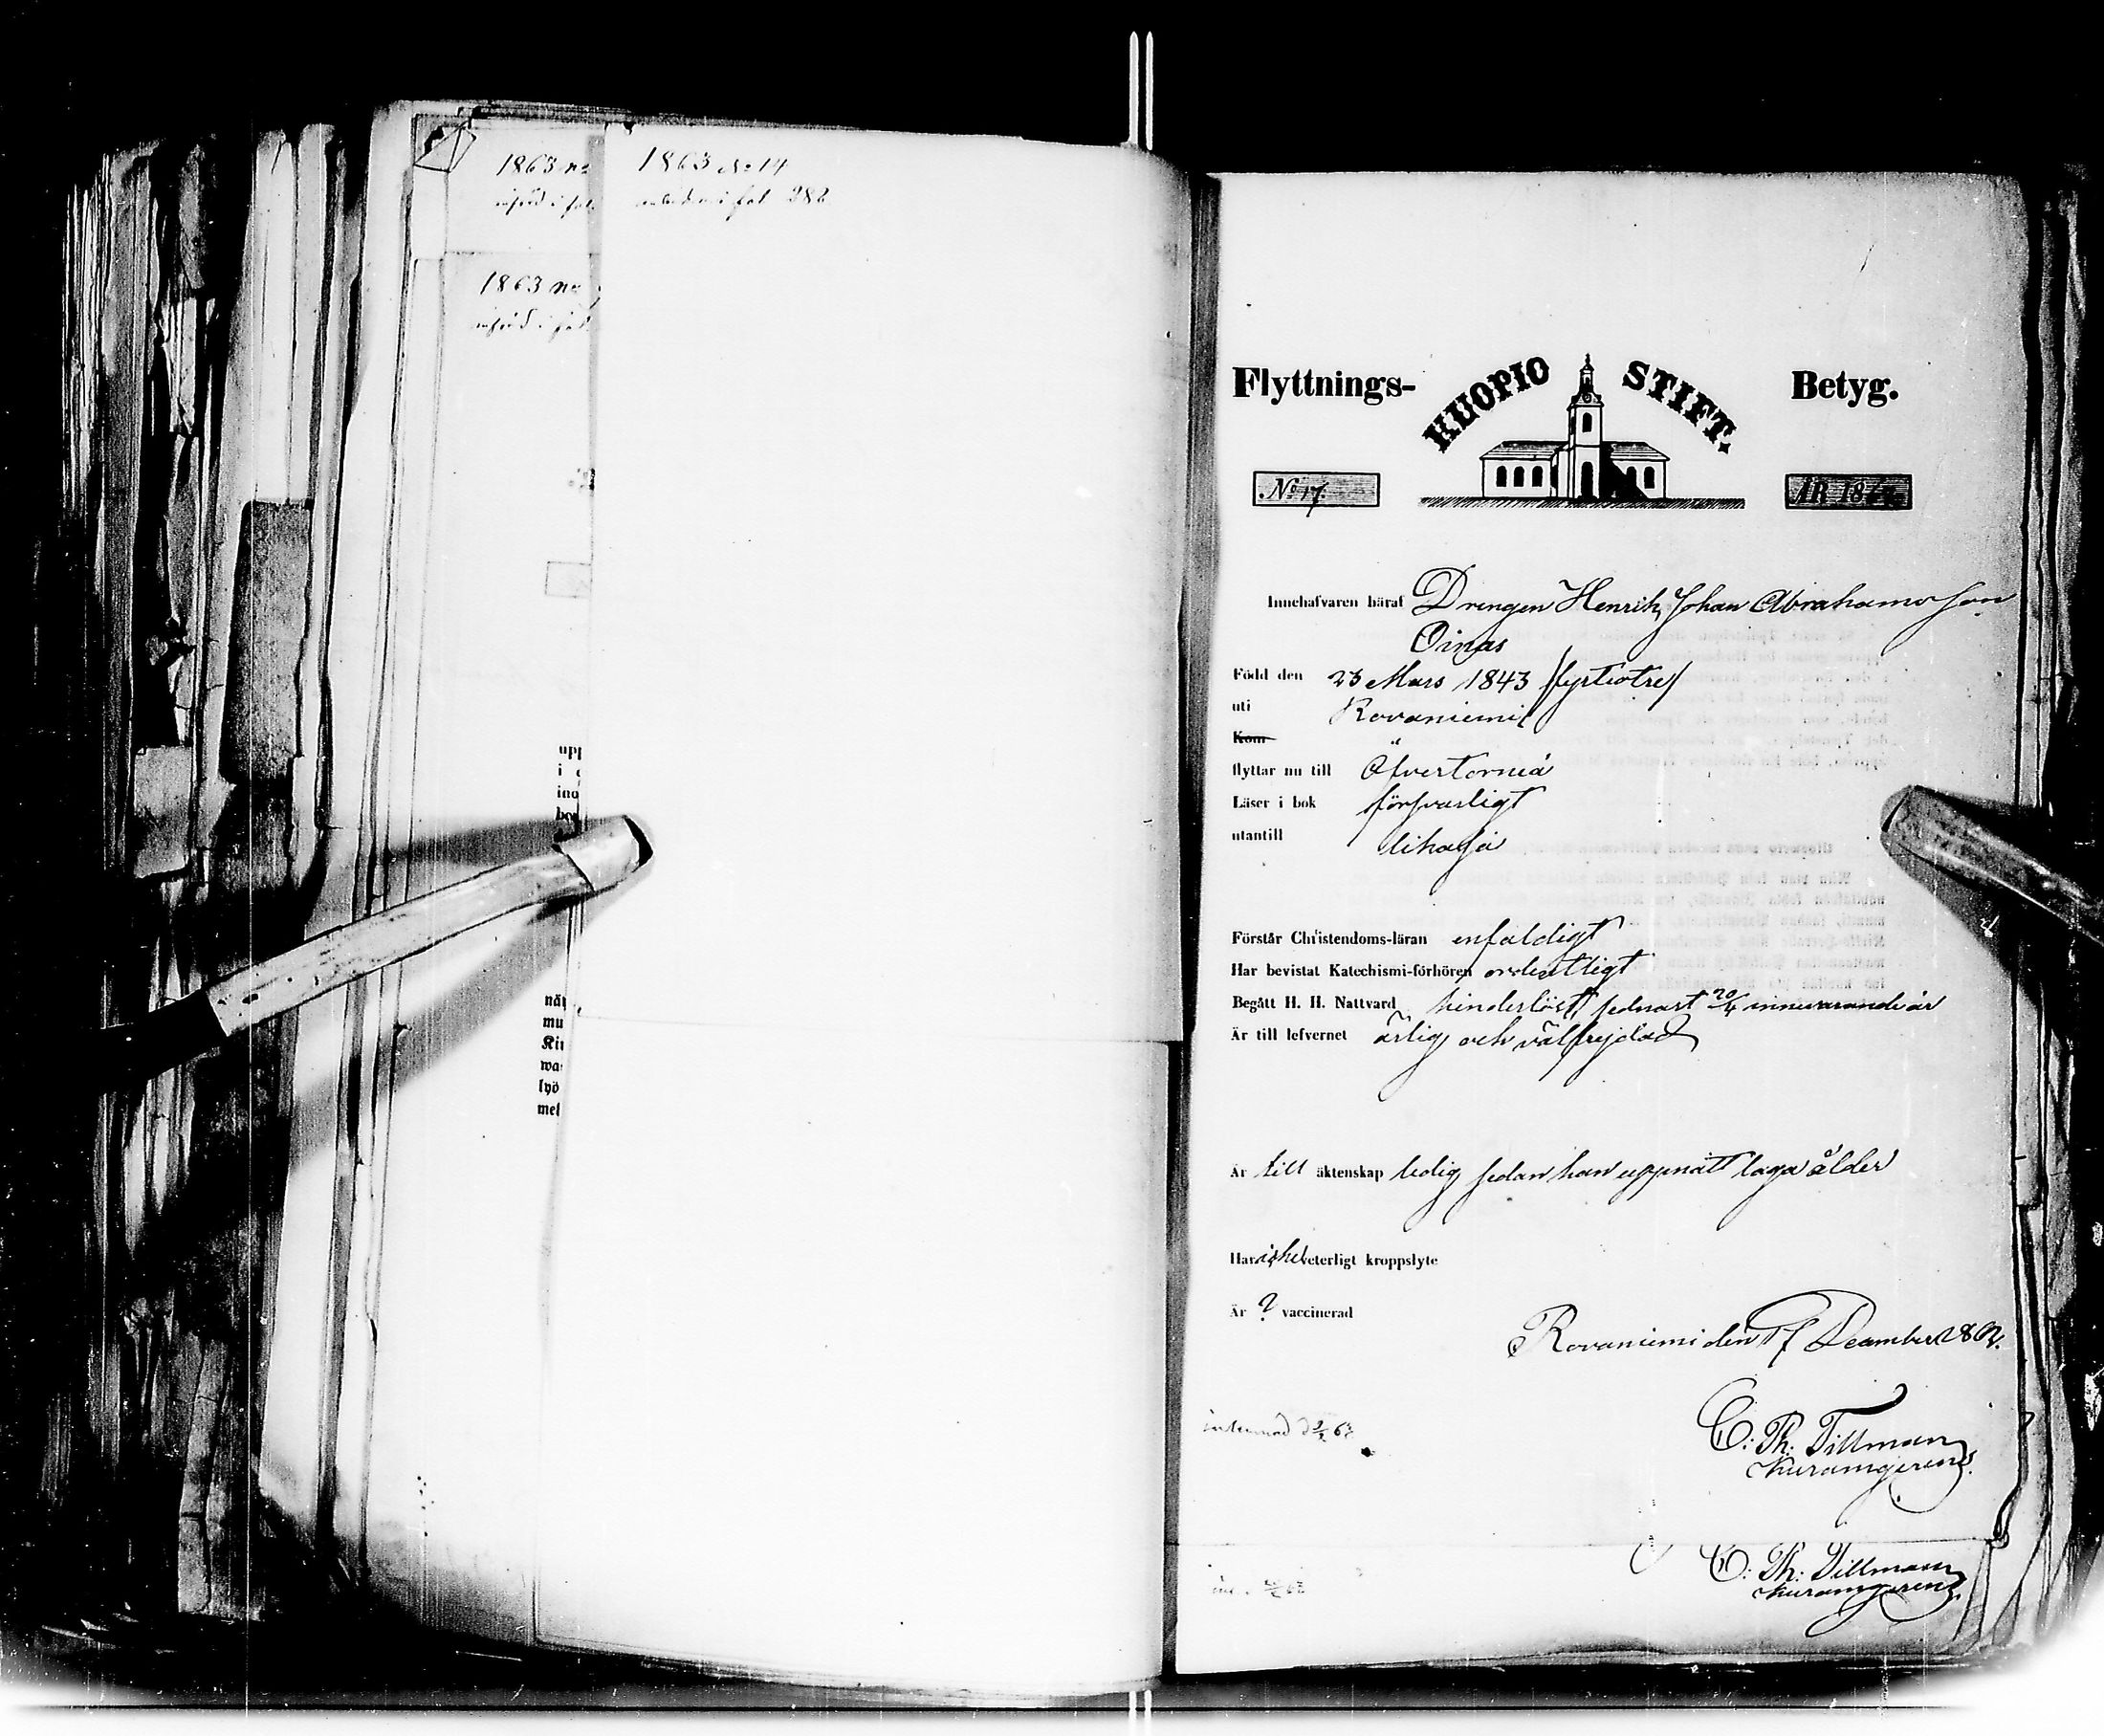 1863 No
införd i fol.
1863 No 14
fol 282
1863 No
införd i fol.
upp
i
ino
nä
mu
Kir
wa
lyö
mel
Flyttnings- KUOPIO STIFT. Betyg.
No 17. ÅR 186
Innehafvaren häraf Drengen Henrik Johan Abrahamsson
Oinas
Född den 23 Mars 1843 /fyrtiotre/
uti Rovaniemi
Kom
flyttar nu till Öfvertorneå
Läser i bok försvarligt
utantill likaså
Förstår Christendoms-läran enfaldigt
Har bevistat Katechismi-förhören ordentligt
Begått H. H. Nattvard hinderlöst, sednast 20/4 innevarande år
Är till lefvernet ärlig och välfrejdad
Är till äktenskap ledig sedan han uppnått laga ålder
Har icke veterligt kroppslyte
Är ? vaccinerad
Rovaniemi den 17 December 1862.
inlemnad d 2/2 63
C: Th: Tillman
Kuramgerens.
C: Th: Tillman
Kuramgerens.